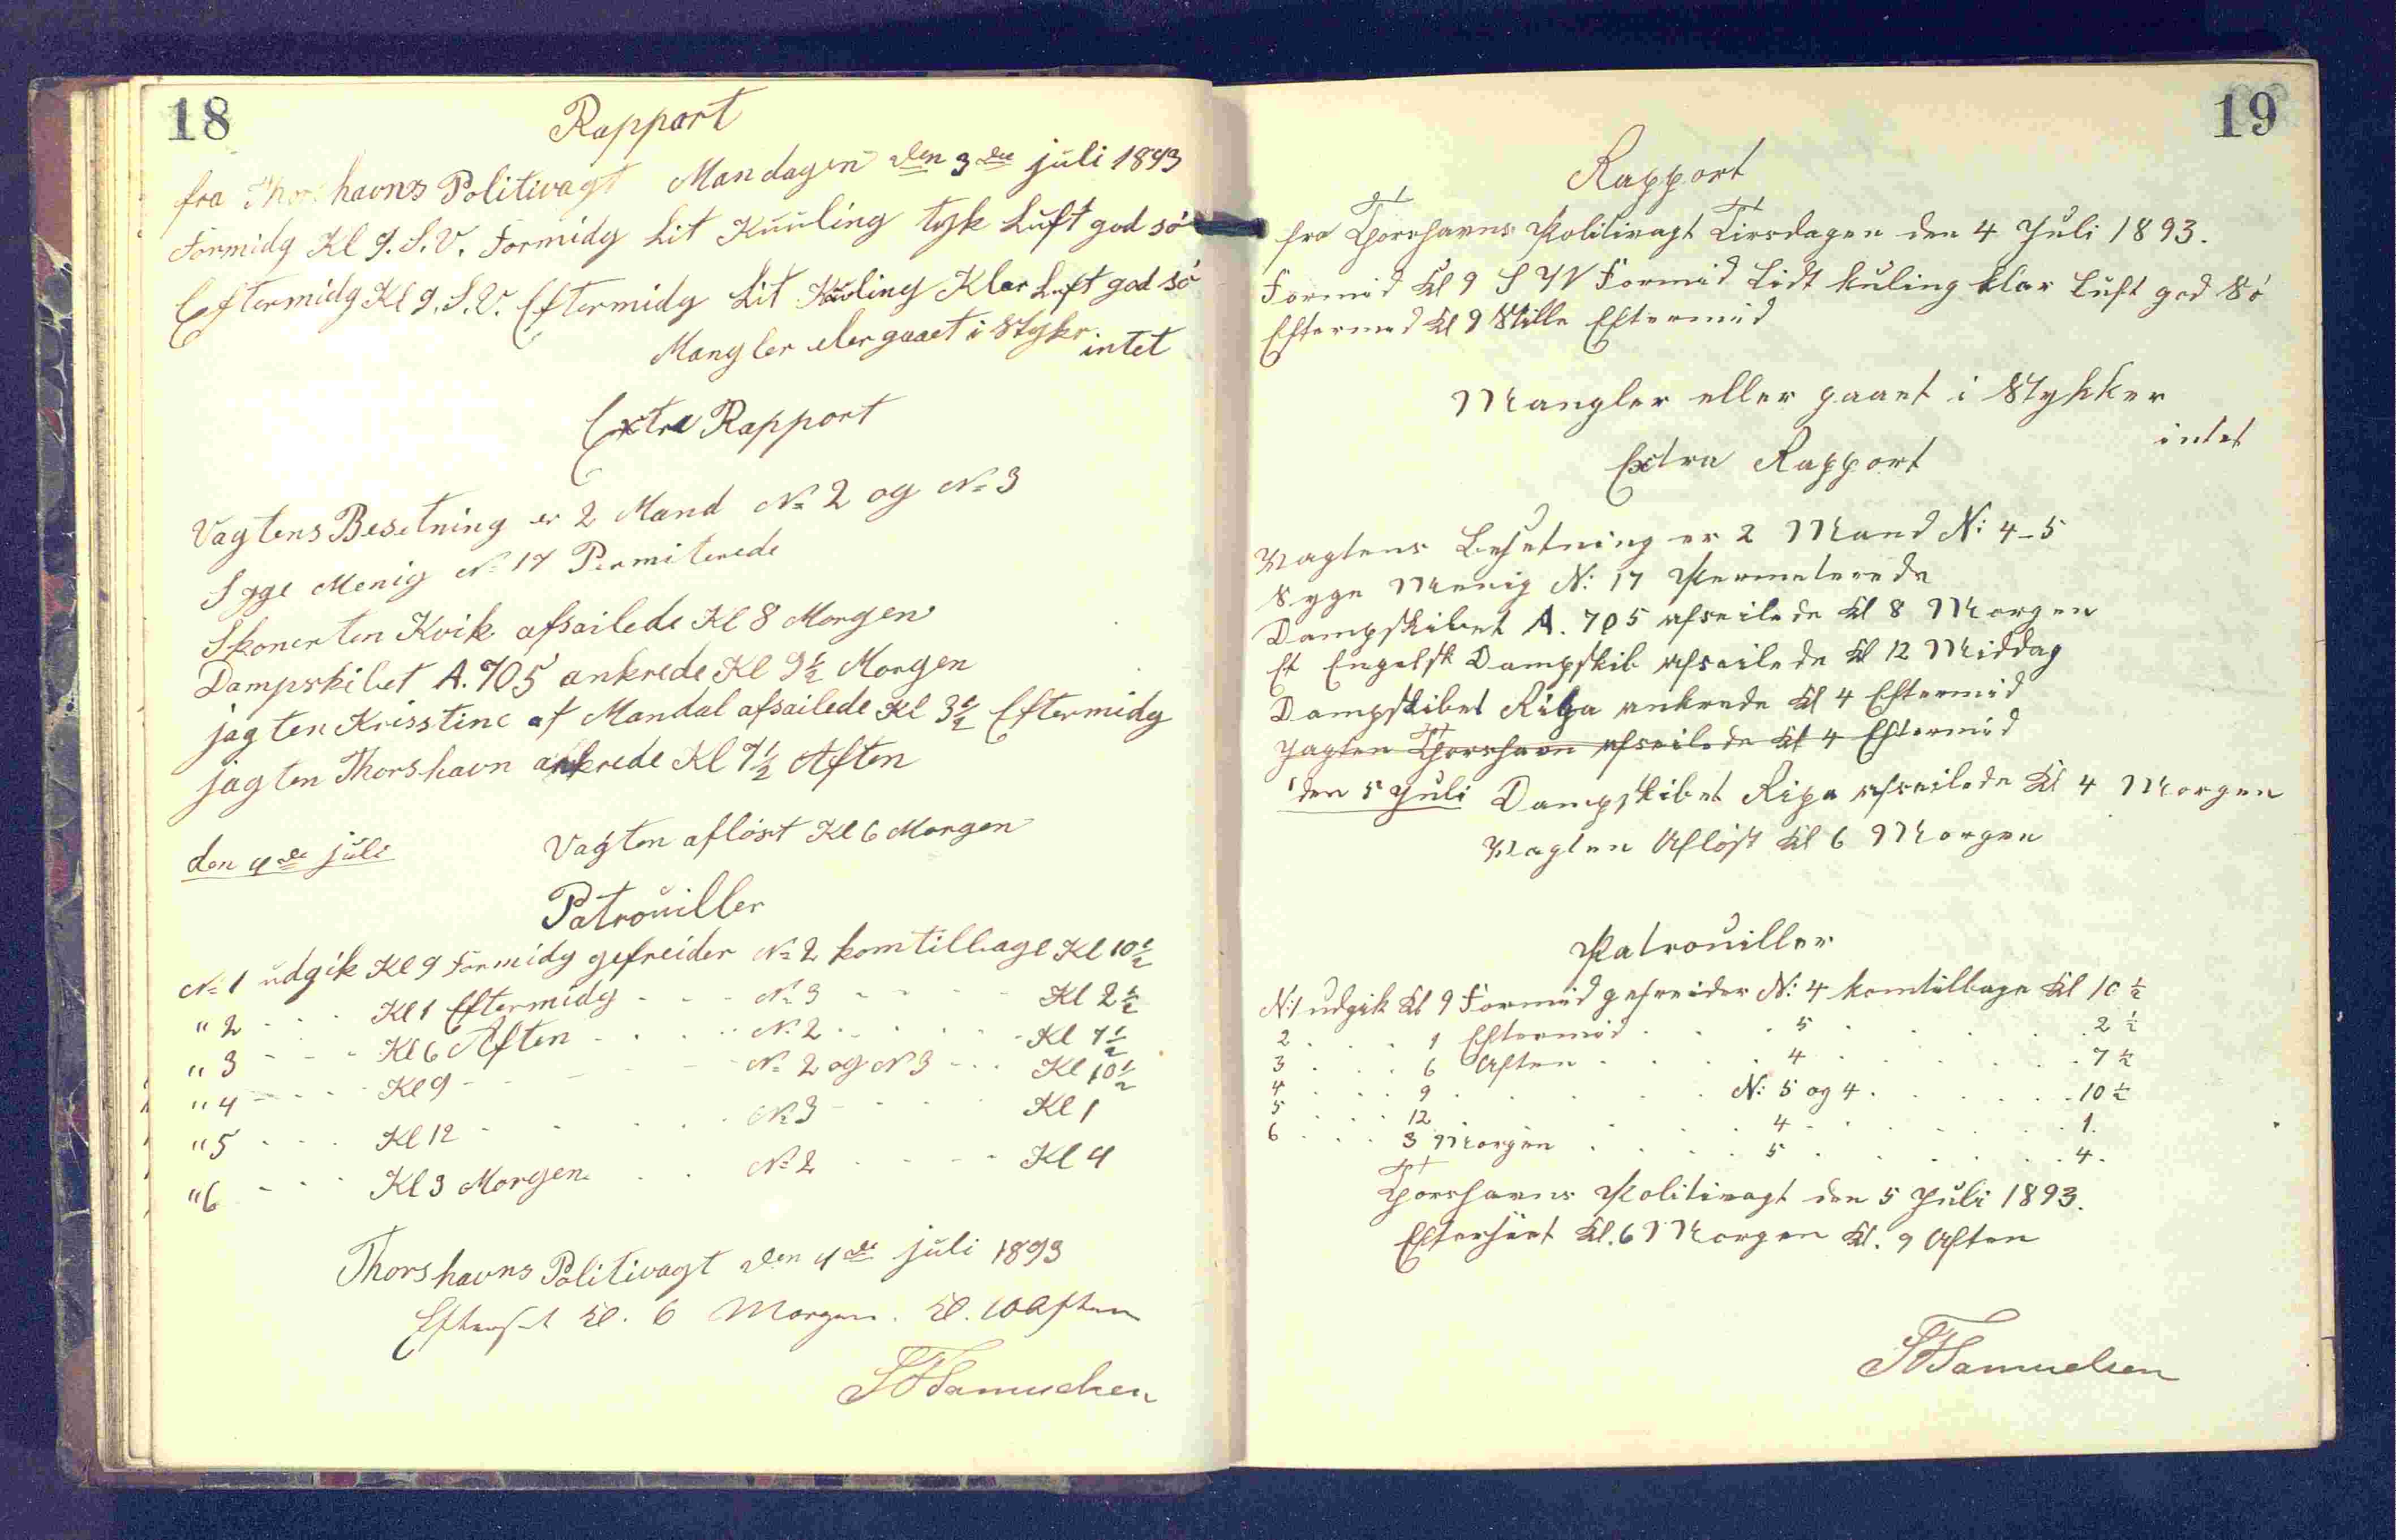 18
Rapport
fra Thorshavns Politivagt Mandagen den 3de juli 1893
Formidg Kl 9. S.V. Formidg Lit Kuuling tyk Luft god sö
Eftermidg Kl 9. S.V. Eftermidg Lit Kuuling Klar Luft god sö
Mangler eler gaaet i Stykr intet
Extra Rapport
Vagtens Besetning er 2 Mand No 2 og No 3
Syge Menig No 17 Permiterede
Skonerten Kvik afsailede Kl 8 Morgen
Dampskibet A. 705 ankrede Kl 9½ Morgen
jagten Krisstine af Mandal afsailede Kl 3½ Eftermidg
jagten Thorshavn ankrede Kl 7½ Aften
den 4de juli Vagten aflöst Kl 6 Morgen
Patrouiller
No 1 udgik Kl 9 Formidg gefreider No 2 kom tilbage Kl 10½
" 2 - - - Kl 1 Eftermidg - - - No 3 - - - - Kl 2½
" 3 - - - Kl 6 Aften - - - No 2 - - - - Kl 7½
" 4 - - - Kl 9 - - - No 2 og No 3 - - - Kl 10½
" 5 - - - Kl 12 - - - No 3 - - - - Kl 1
" 6 - - - Kl 3 Morgen - - No 2 - - - - Kl 4
Thorshavns Politivagt den 4de juli 1893
Efterset Kl. 6 Morgen. Kl. 10 Aften
SFSamuelsen
19
Rapport
fra Thorshavns Politivagt Tirsdagen den 4 Juli 1893.
Formid Kl 9 S W Formid Lidt kuling klar Luft god Sö
Eftermed Kl 9 Stille Eftermid
Mangler eller gaaet i Stykker
intet
Extra Rapport
Vagtens Besetning er 2 Mand N: 4-5
Syge Menig N: 17 Permeterede
Dampskibet A. 705 afseilede Kl 8 Morgen
Et Engelsk Dampskib afseilede Kl 12 Middag
Dampskibet Ripa ankrede Kl 4 Eftermid
Jagten Thorshavn afseilede Kl 4 Eftermid
den 5 Juli Dampskibet Ripa afseilede Kl 4 Morgen
Vagten Aflöst Kl 6 Morgen
Patrouiller
N: 1 udgik Kl 9 Formid gefreider N: 4 kom tilbage Kl 10½
2 . . . 1 Eftermid . . . 5 . . . 2½
3 . . . 6 Aften . . . 4 . . . 7½
4 . . . 9 . . . N: 5 og 4 . . . 10½
5 . . . 12 . . . 4 . . . 1.
6 . . . 3 Morgen . . . 5 . . . 4.
Thorshavns Politivagt den 5 Juli 1893.
Kl. 6 Morgen Kl. 9 Aften
SFSamuelsen